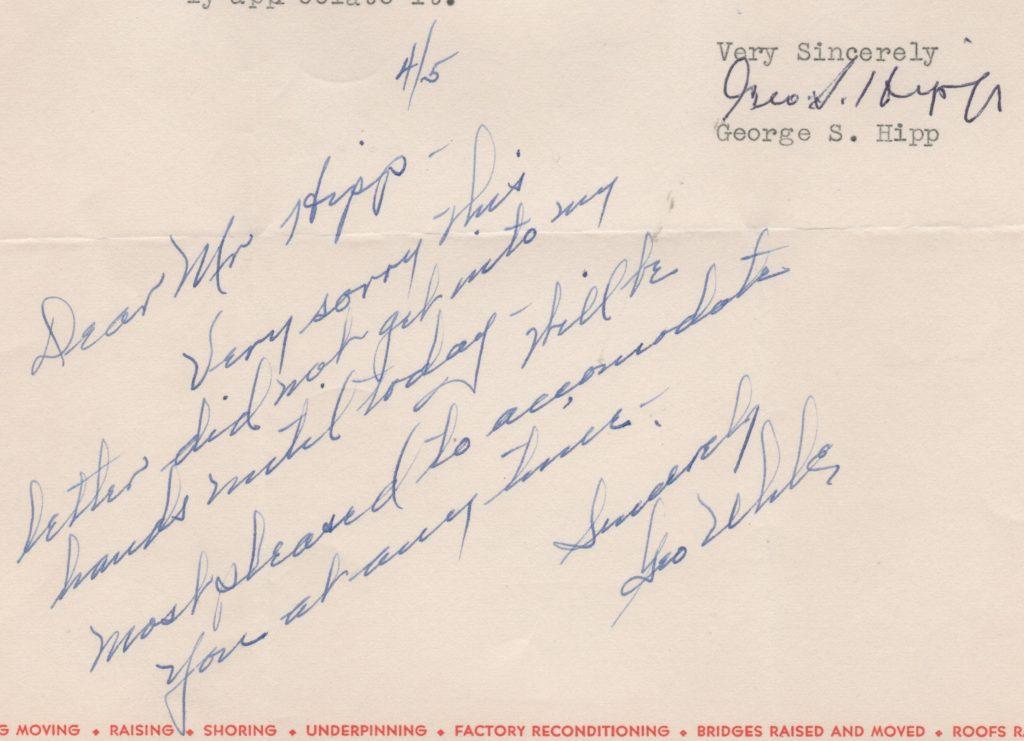 ly appreciate it.
4/5
Very Sincerely
Geo. S. Hipp
George S. Hipp
Dear Mr Hipp -
Very sorry this
letter did not get into my
hands until today - Will be
most pleased to accomodate
you at any time -
Sincerely
Geo
G MOVING ♦ RAISING ♦ SHORING ♦ UNDERPINNING ♦ FACTORY RECONDITIONING ♦ BRIDGES RAISED AND MOVED ♦ ROOFS R